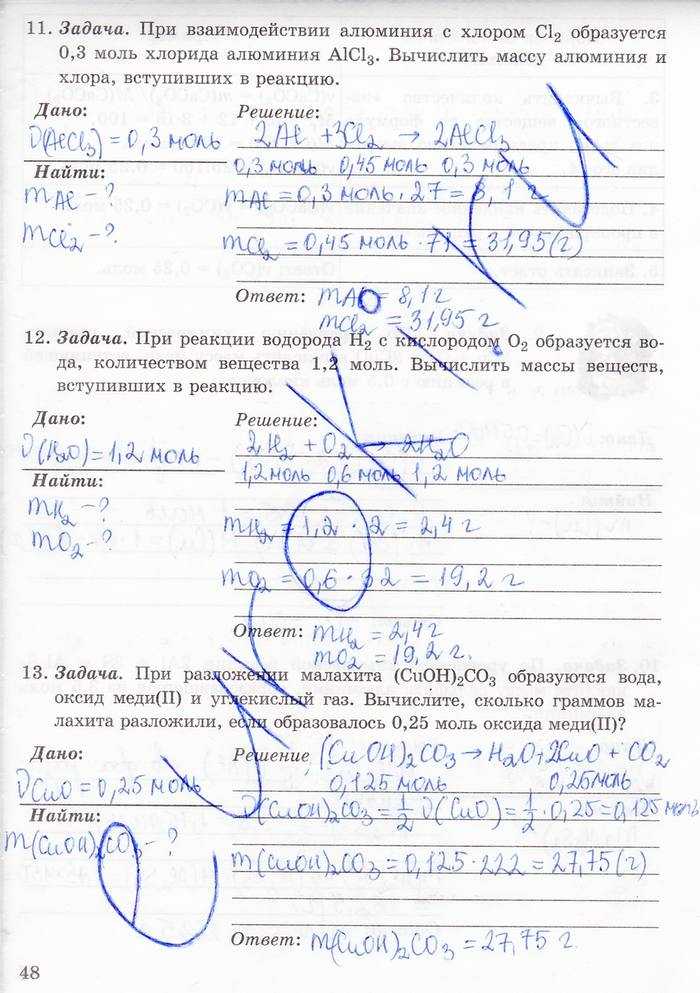 11. Задача. При взаимодействии алюминия с хлором Cl₂ образуется
0,3 моль хлорида алюминия AlCl₃. Вычислить массу алюминия и
хлора, вступивших в реакцию.
Дано:
ν(AlCl₃) = 0,3 моль
Найти:
mAl - ?
mCl₂ - ?
Решение:
2Al + 3Cl₂ → 2AlCl₃
0,3 моль 0,45 моль 0,3 моль
mAl = 0,3 моль · 27 = 8,1 г
mCl₂ = 0,45 моль · 71 = 31,95 (г)
Ответ: mAl = 8,1 г
mCl₂ = 31,95 г
12. Задача. При реакции водорода H₂ с кислородом O₂ образуется во-
да, количеством вещества 1,2 моль. Вычислить массы веществ,
вступивших в реакцию.
Дано:
ν(H₂O) = 1,2 моль
Найти:
mH₂ - ?
mO₂ - ?
Решение:
2H₂ + O₂ → 2H₂O
1,2 моль 0,6 моль 1,2 моль
mH₂ = 1,2 · 2 = 2,4 г
mO₂ = 0,6 · 32 = 19,2 г
Ответ: mH₂ = 2,4 г
mO₂ = 19,2 г.
13. Задача. При разложении малахита (CuOH)₂CO₃ образуются вода,
оксид меди(II) и углекислый газ. Вычислите, сколько граммов ма-
лахита разложили, если образовалось 0,25 моль оксида меди(II)?
Дано:
νCuO = 0,25 моль
Найти:
m(CuOH)₂CO₃ - ?
Решение (CuOH)₂CO₃ → H₂O + 2CuO + CO₂
0,125 моль 0,25 моль
ν(CuOH)₂CO₃ = 1/2 ν(CuO) = 1/2 · 0,25 = 0,125 моль
m(CuOH)₂CO₃ = 0,125 · 222 = 27,75 (г)
Ответ: m(CuOH)₂CO₃ = 27,75 г.
48